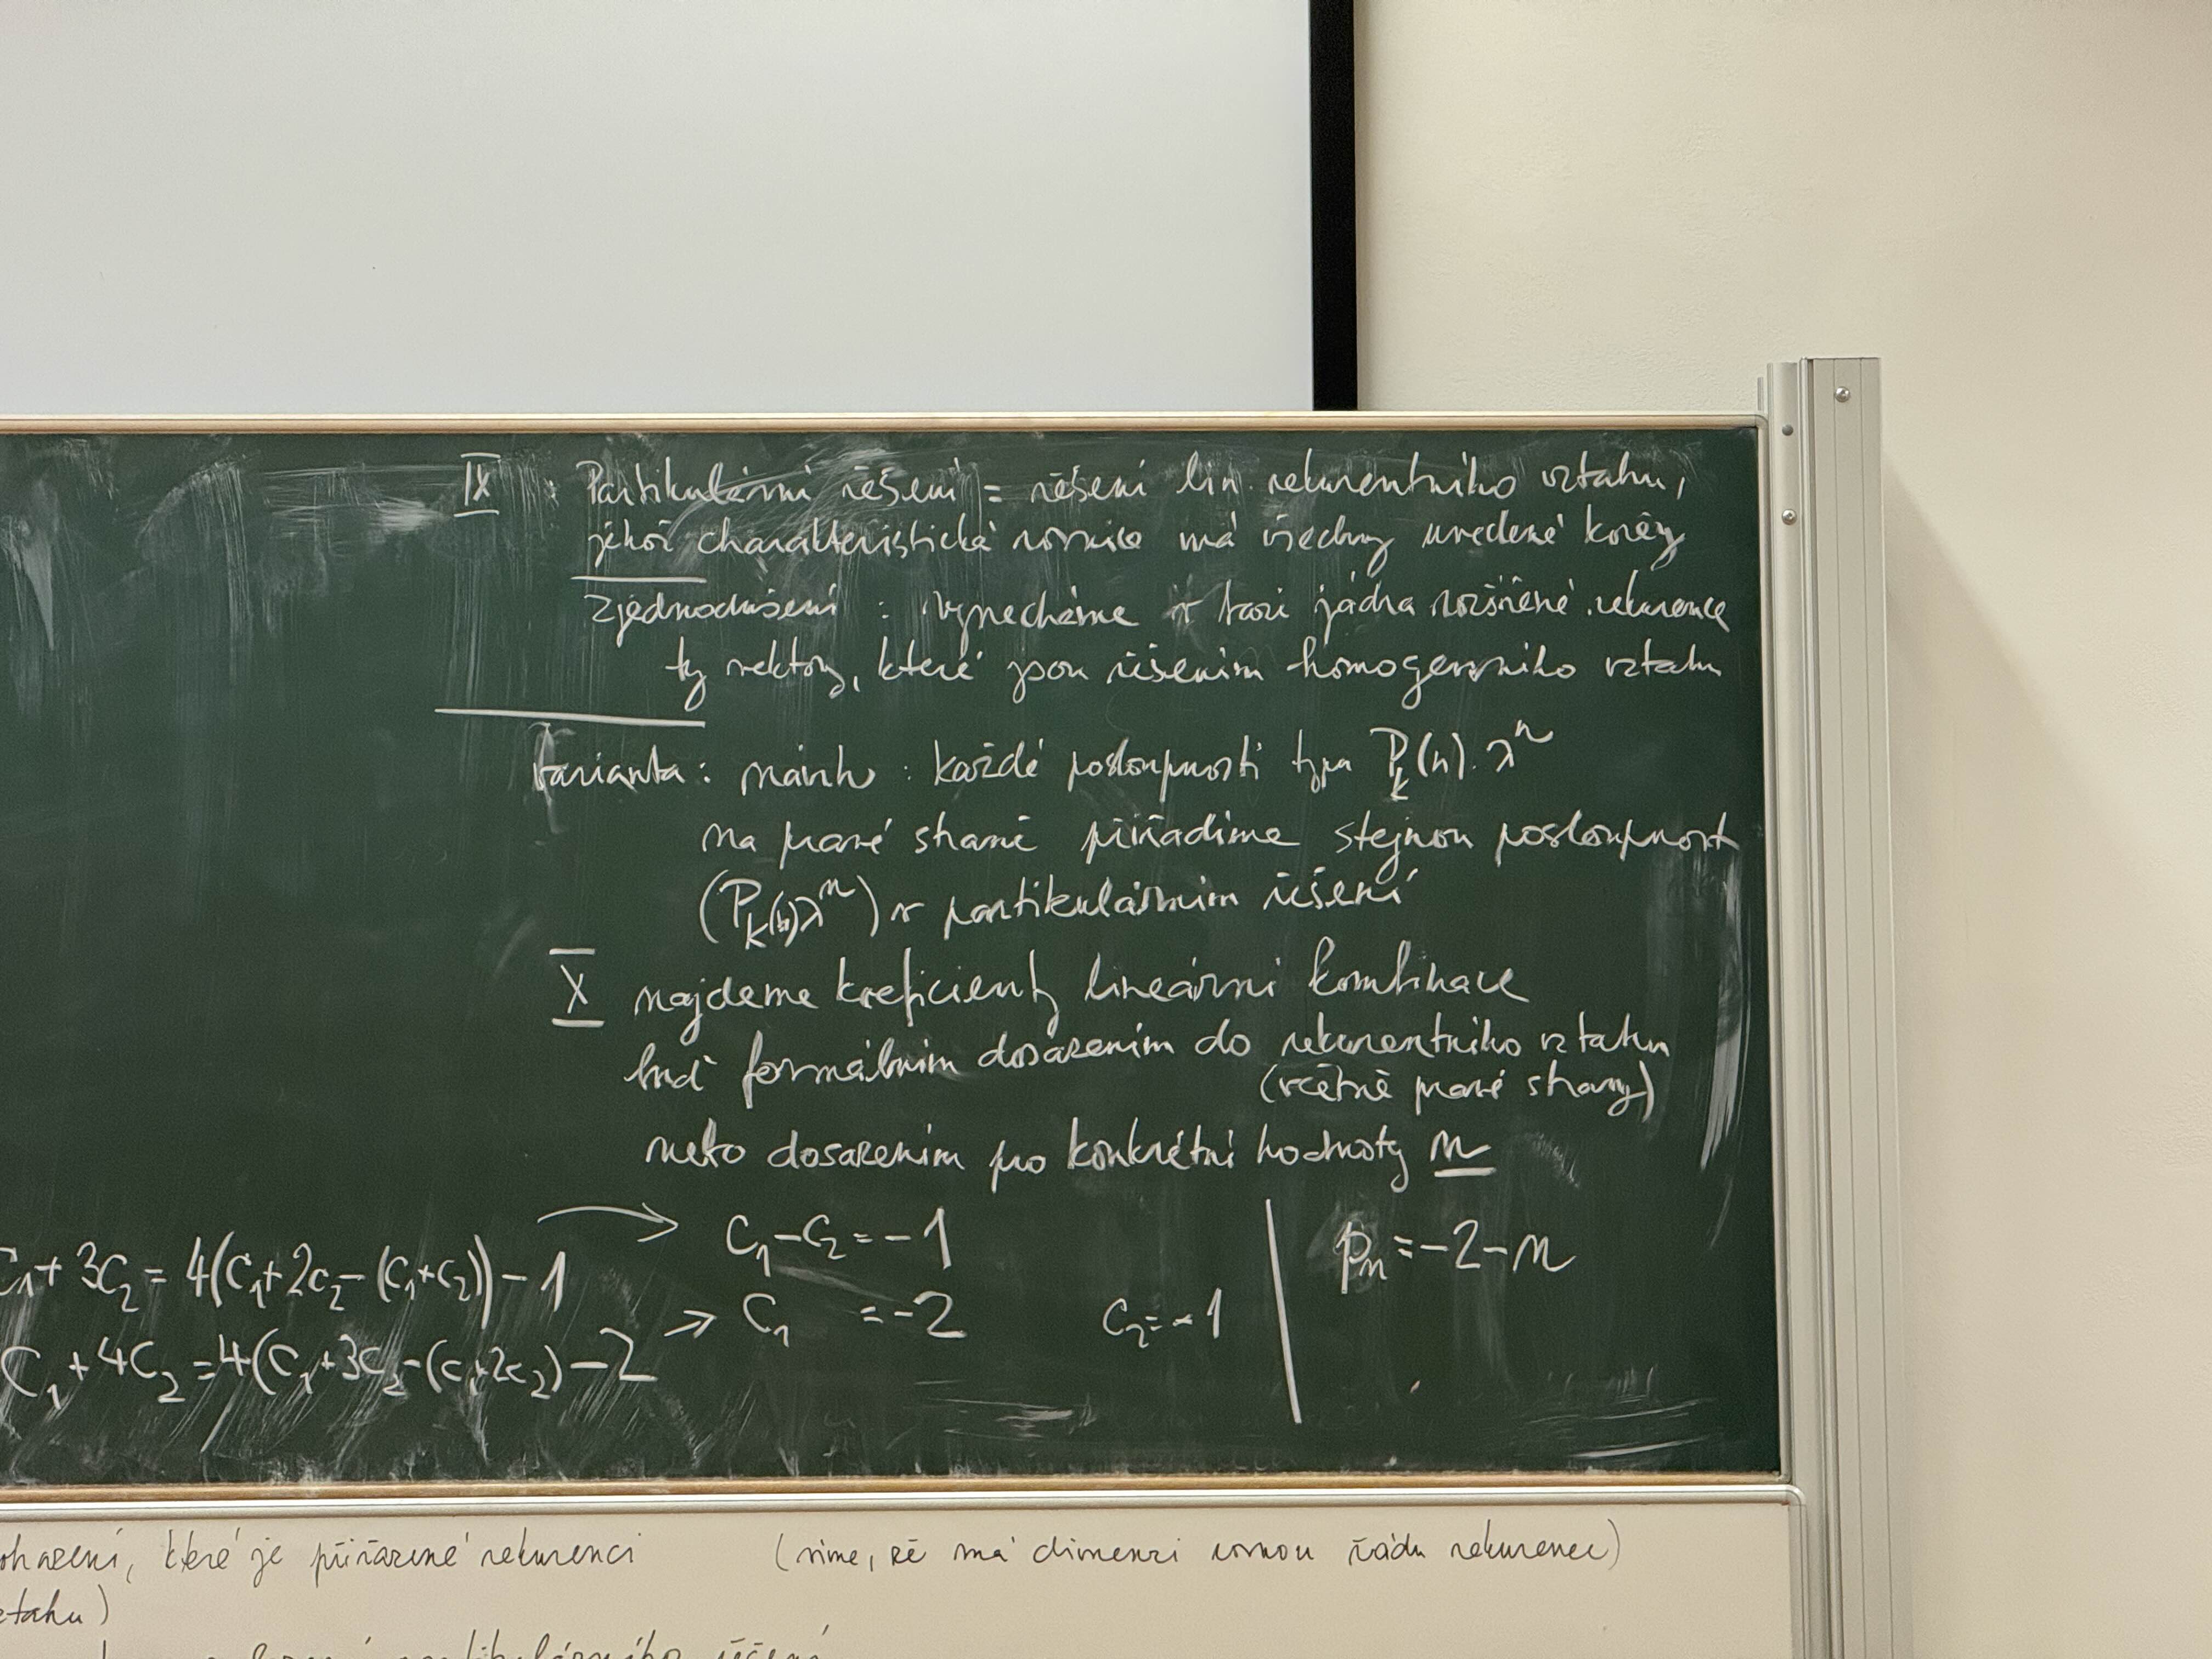 IX : Partikulární řešení = řešení lin. rekurentního vztahu,
jehož charakteristická rovnice má všechny uvedené kořeny
Zjednodušení : vynecháme v bázi jádra rozšířené rekurence
ty vektory, které jsou řešením homogenního vztahu
Varianta : návrh : každé posloupnosti typu P_k(n) · λ^n
na pravé straně přiřadíme stejnou posloupnost
(P_k(n)λ^n) v partikulárním řešení
X najdeme koeficienty lineární kombinace
buď formálním dosazením do rekurentního vztahu
(včetně pravé strany)
nebo dosazením pro konkrétní hodnoty n
C₁ + 3C₂ = 4(C₁+2C₂-(C₁+C₂)) - 1 → C₁ - C₂ = -1
C₁ + 4C₂ = 4(C₁+3C₂-(C₁+2C₂) - 2 → C₁ = -2 C₂ = -1
p_n = -2 - n
které je přiřazené rekurenci (víme, že má dimenzi rovnou řádu rekurence)
vztahu)
partikulárního řešení